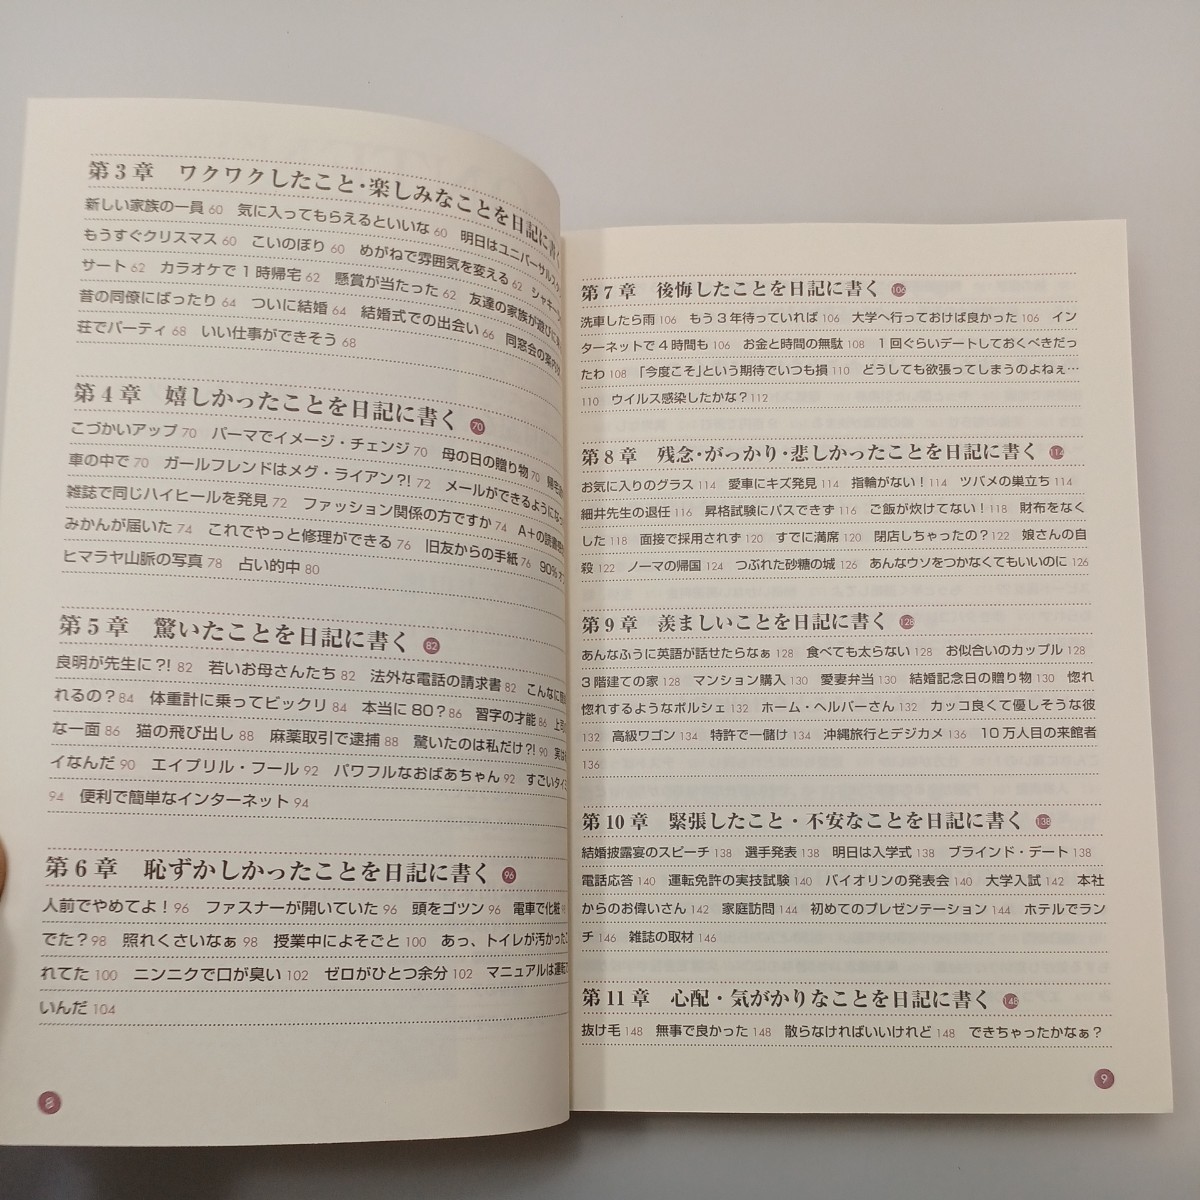 第3章　ワクワクしたこと・楽しみなことを日記に書く
新しい家族の一員 60　気に入ってもらえるといいな 60　明日はユニバーサルスタ
もうすぐクリスマス 60　こいのぼり 60　めがねで雰囲気を変える 62　シャキーン
サート 62　カラオケで1時帰宅 62　懸賞が当たった 62　友達の家族が遊びに
昔の同僚にばったり 64　ついに結婚 64　結婚式での出会い 66　同窓会の案内
荘でパーティ 68　いい仕事ができそう 68
第4章　嬉しかったことを日記に書く 70
こづかいアップ 70　パーマでイメージ・チェンジ 70　母の日の贈り物 70　帰宅
車の中で 70　ガールフレンドはメグ・ライアン?! 72　メールができるようになっ
雑誌で同じハイヒールを発見 72　ファッション関係の方ですか 74　A+の読書
みかんが届いた 74　これでやっと修理ができる 76　旧友からの手紙 76　90%
ヒマラヤ山脈の写真 78　占い的中 80
第5章　驚いたことを日記に書く 82
良明が先生に?! 82　若いお母さんたち 82　法外な電話の請求書 82　こんなに
れるの? 84　体重計に乗ってビックリ 84　本当に80? 86　習字の才能 86　上司
な一面 86　猫の飛び出し 88　麻薬取引で逮捕 88　驚いたのは私だけ?! 90　実は
イなんだ 90　エイプリル・フール 92　パワフルなおばあちゃん 92　すごいタイ
94　便利で簡単なインターネット 94
第6章　恥ずかしかったことを日記に書く 96
人前でやめてよ! 96　ファスナーが開いていた 96　頭をゴツン 96　電車で化粧
でた? 98　照れくさいなぁ 98　授業中によそごと 100　あっ、トイレが汚かった
れてた 100　ニンニクで口が臭い 102　ゼロがひとつ余分 102　マニュアルは運転
いんだ 104
8
第7章　後悔したことを日記に書く 106
洗車したら雨 106　もう3年待っていれば 106　大学へ行っておけば良かった 106　イン
ターネットで4時間も 106　お金と時間の無駄 108　1回ぐらいデートしておくべきだっ
たわ 108　「今度こそ」という期待でいつも損 110　どうしても欲張ってしまうのよねぇ…
110　ウイルス感染したかな? 112
第8章　残念・がっかり・悲しかったことを日記に書く 114
お気に入りのグラス 114　愛車にキズ発見 114　指輪がない! 114　ツバメの巣立ち 114
細井先生の退任 116　昇格試験にパスできず 116　ご飯が炊けてない! 118　財布をなく
した 118　面接で採用されず 120　すでに満席 120　閉店しちゃったの? 122　娘さんの自
殺 122　ノーマの帰国 124　つぶれた砂糖の城 126　あんなウソをつかなくてもいいのに 126
第9章　羨ましいことを日記に書く 128
あんなふうに英語が話せたらなぁ 128　食べても太らない 128　お似合いのカップル 128
3階建ての家 128　マンション購入 130　愛妻弁当 130　結婚記念日の贈り物 130　惚れ
惚れするようなポルシェ 132　ホーム・ヘルパーさん 132　カッコ良くて優しそうな彼
132　高級ワゴン 134　特許で一儲け 134　沖縄旅行とデジカメ 136　10万人目の来館者
136
第10章　緊張したこと・不安なことを日記に書く 138
結婚披露宴のスピーチ 138　選手発表 138　明日は入学式 138　ブラインド・デート 138
電話応答 140　運転免許の実技試験 140　バイオリンの発表会 140　大学入試 142　本社
からのお偉いさん 142　家庭訪問 144　初めてのプレゼンテーション 144　ホテルでラン
チ 146　雑誌の取材 146
第11章　心配・気がかりなことを日記に書く 148
抜け毛 148　無事で良かった 148　散らなければいいけれど 148　できちゃったかなぁ?
9